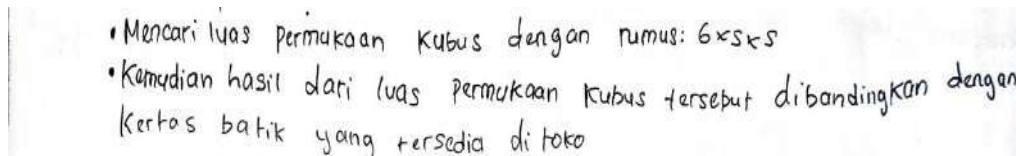 • Mencari luas permukaan kubus dengan rumus: 6×s×s
• Kemudian hasil dari luas permukaan kubus tersebut dibandingkan dengan
kertas batik yang tersedia di toko